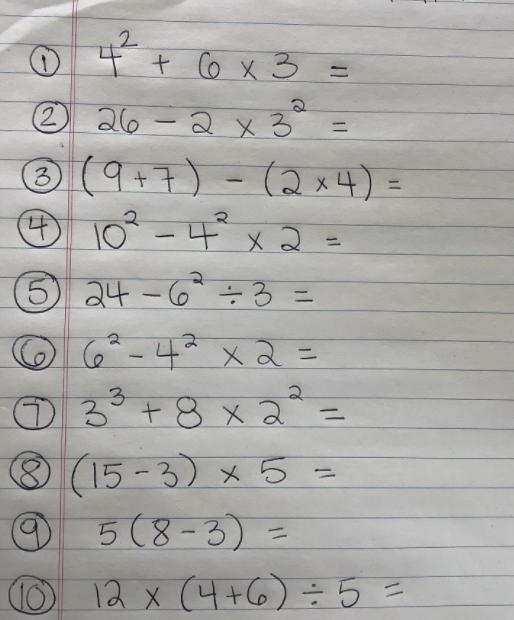 ① 4² + 6 × 3 =
② 26 - 2 × 3² =
③ (9+7) - (2×4) =
④ 10² - 4² × 2 =
⑤ 24 - 6² ÷ 3 =
⑥ 6² - 4² × 2 =
⑦ 3³ + 8 × 2² =
⑧ (15 - 3) × 5 =
⑨ 5(8 - 3) =
⑩ 12 × (4+6) ÷ 5 =